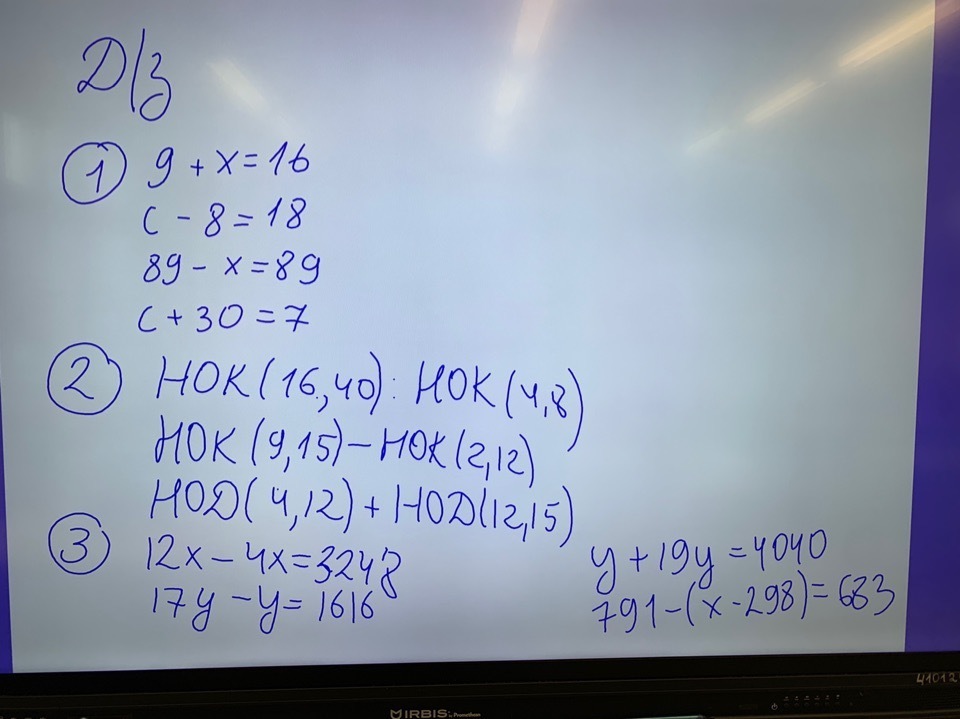 Д/з
① 9 + x = 16
c - 8 = 18
89 - x = 89
c + 30 = 7
② НОК(16,40) : НОК(4,8)
НОК(9,15) - НОК(2,12)
НОД(4,12) + НОД(12,15)
③ 12x - 4x = 3248
17y - y = 1616
y + 19y = 4040
791 - (x - 298) = 683
IRBIS by Promethean
41012